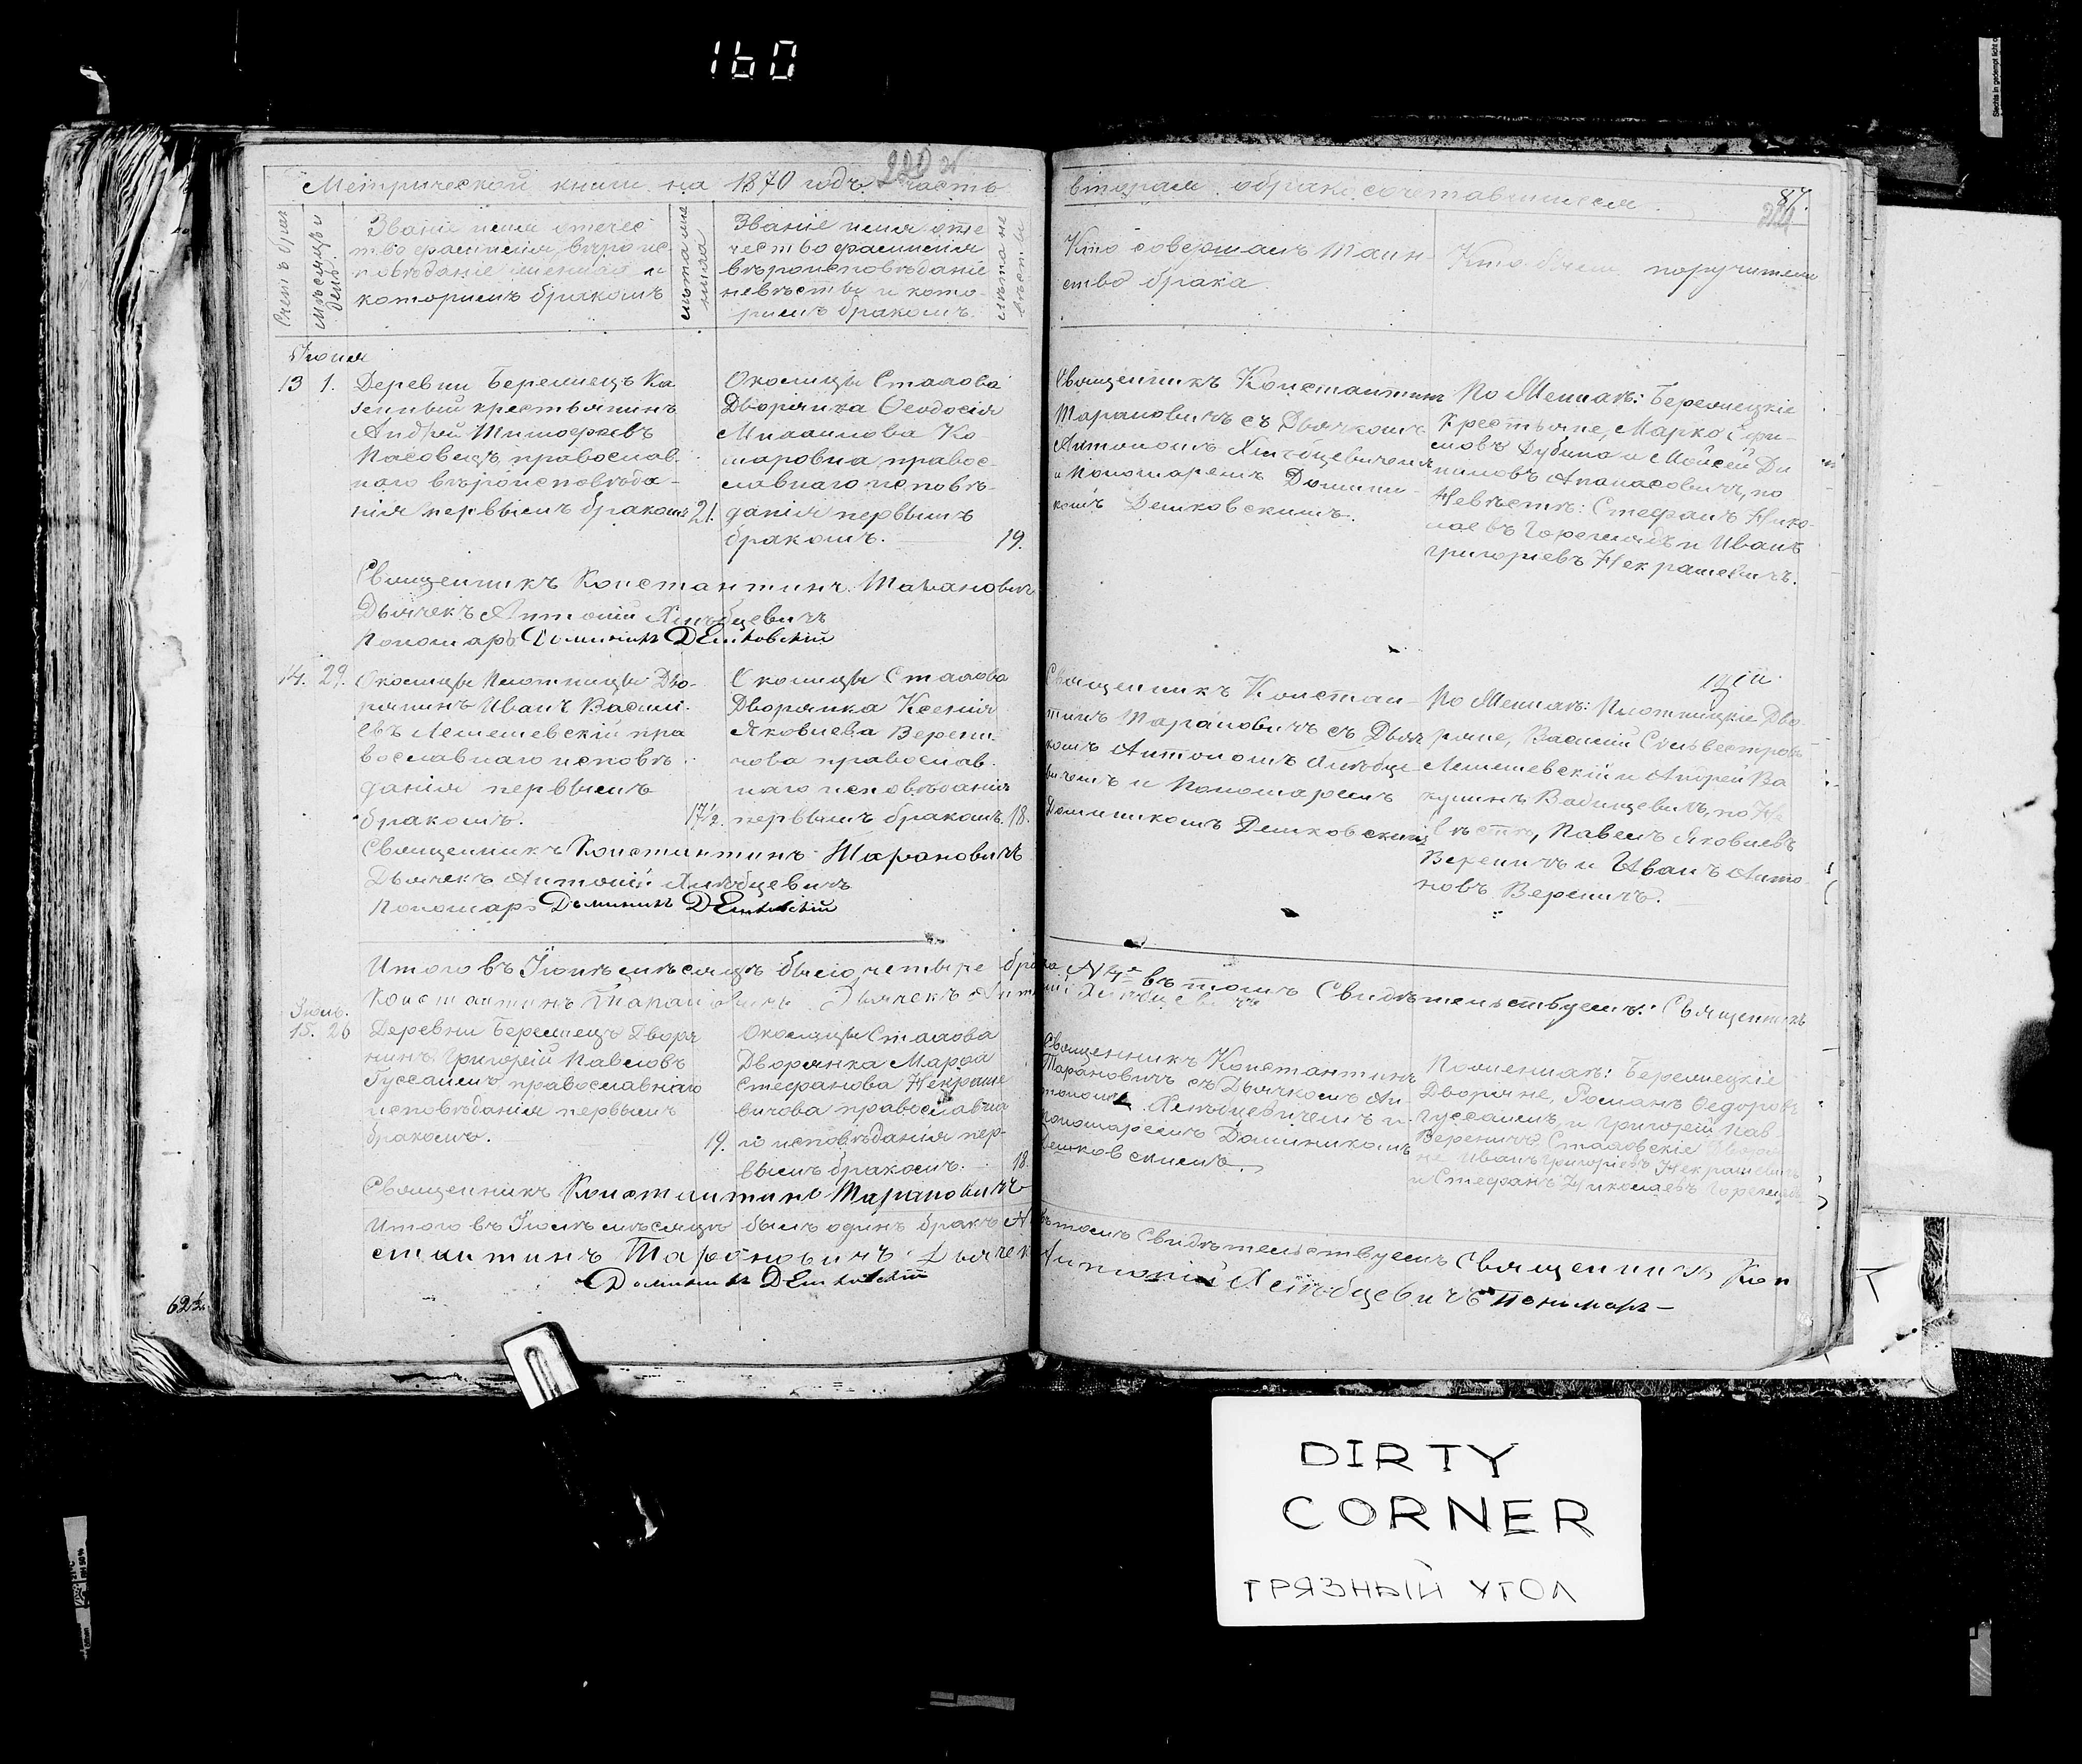 160
220
Метрической книги на 1870 годъ часть
вторая о бракосочетавшихся.
87.
Счетъ брак
Мѣсяцъ и день
Званіе имя отчес
тво фамилія, вѣроис
повѣданіе жениха и
которымъ бракомъ
лѣта же
ниха
Званіе имя отче
чество фамилія
вѣроисповѣданіе
невѣсты и кото
рымъ бракомъ.
лѣта не
вѣсты
Кто совершалъ Таин
ство брака.
Кто были поручители
Іюня
13 1.
Деревни Беремецъ Ка
зенный крестьянинъ
Андрей Тимофеевъ
Пасовецъ православ.
наго вѣроисповѣда-
нія первымъ бракомъ 21.
Околицы Сталова
Дворянка Ѳеодосія
Михаилова Ко-
маровна правос-
славнаго исповѣ-
данія первымъ
бракомъ. 19.
Священникъ Константинъ
Тарановичъ съ Дьячкомъ
Антономъ Хлѣбцевичемъ
и Пономаремъ Домини-
комъ Демковскимъ.
По Женихѣ: Беремецкіе
Крестьяне, Марко Ефи-
мовъ Дубина и Мойсей Да
ниловъ Апанасовичъ, по
Невѣстѣ: Стефанъ Нико-
лаевъ Горегляд и Иванъ
Григорьевъ Некрашевичъ.
Священникъ Константинъ Тарановичъ
Дьячекъ Антоній Хлѣбцевичъ
Пономаръ Доминикъ Демковскій
14. 29.
Околицы Плотницы Дво-
рянинъ Иванъ Васили-
евъ Лемешевскій пра
вославнаго исповѣ-
данія первымъ
бракомъ. 17½.
Околицы Сталова
Дворянка Ксенія
Яковлева Верени-
чова православ-
наго исповѣданія
первымъ бракомъ. 18.
Священникъ Констан-
тинъ Тарановичъ съ Дьяч
комъ Антономъ Хлѣбце-
вичемъ и Пономаремъ
Доминикомъ Демковскимъ
По Женихѣ: Плотницкіе Дво-
ряне, Василій Сильвестровъ
Лемешевскій и Андрей Ва
кулинъ Вабищевичъ, по Не
вѣстѣ, Павелъ Яковлевъ
Вереничъ и Иванъ Анто-
новъ Вереничъ.
Священникъ Константинъ Тарановичъ
Дьячекъ Антоній Хлѣбцевичъ
Пономаръ Доминикъ Демковскій
Итого въ Іюнѣ мѣсяцѣ было четыре брака. № 4 въ томъ Свидѣтельствуемъ: Священникъ
Константинъ Тарановичъ Дьячекъ Антоній Хлѣбцевичъ
Іюль.
15. 26
Деревни Беремецъ Дворя
нинъ Григорій Павловъ
Гуссаимъ православнаго
исповѣданія первымъ
бракомъ. 19.
Околицы Сталова
Дворянка Марѳа
Стефанова Некраше
вичова православна
го исповѣданія пер-
вымъ бракомъ. 18.
Священникъ Константинъ
Тарановичъ съ Дьячкомъ Ан-
тономъ Хлѣбцевичемъ и
Пономаремъ Доминикомъ
Демковскимъ.
По женихѣ: Беремецкіе
Дворяне, Романъ Ѳедоровъ
Гуссаимъ, и Григорій Пав-
Вереничъ Сталовскіе Дворя
не Иванъ Григорьевъ Некрашевичъ
и Стефанъ Николаевъ Горегляд
Священникъ Константинъ Тарановичъ
Итого въ Іюлѣ мѣсяцѣ былъ одинъ бракъ № въ томъ Свидѣтельствуемъ Священникъ Кон
стантинъ Тарановичъ Дьячекъ Антоній Хлѣбцевичъ Пономаръ-
Доминикъ Демковскій
DIRTY
CORNER
ГРЯЗНЫЙ УГОЛ